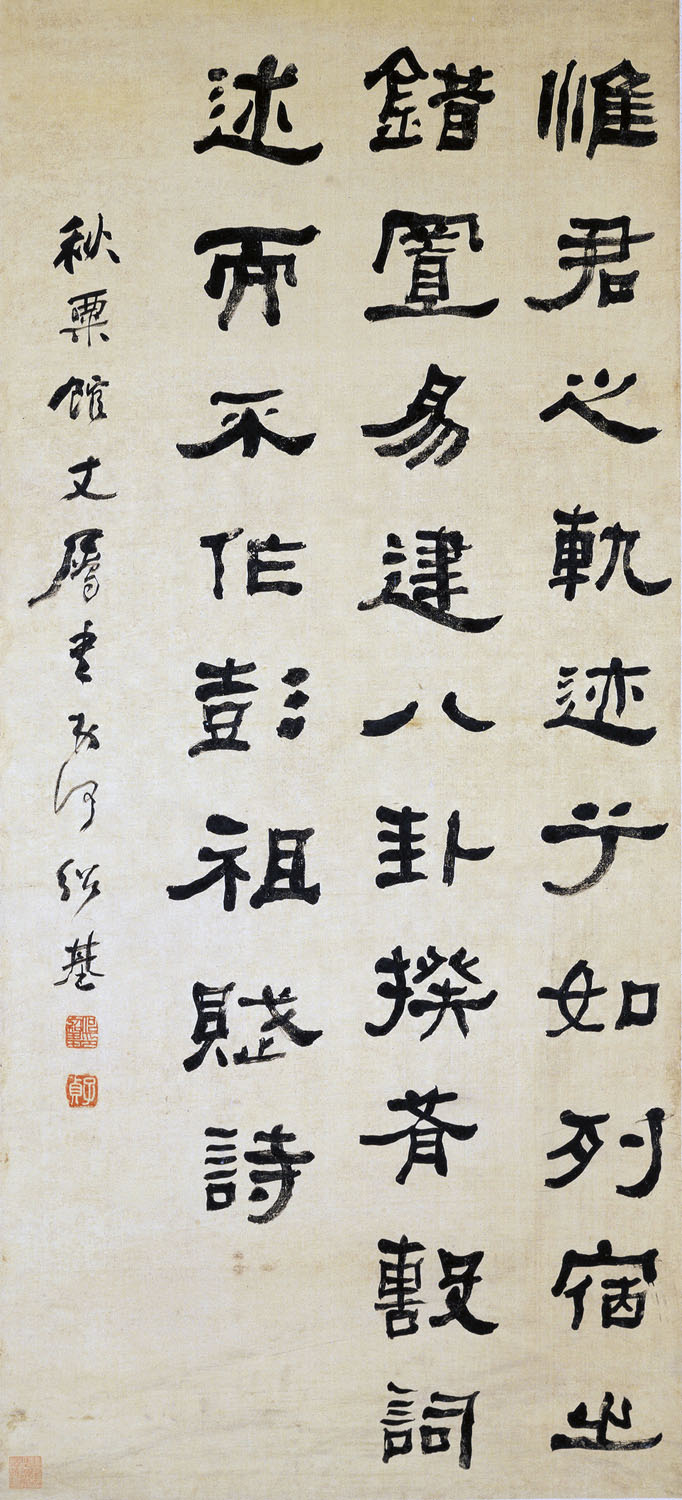 惟君之軌迹兮如列宿之
錯置易建八卦揆肴毄詞
述而不作彭祖賦詩
秋粟館丈屬書何紹基
何紹基印
子貞